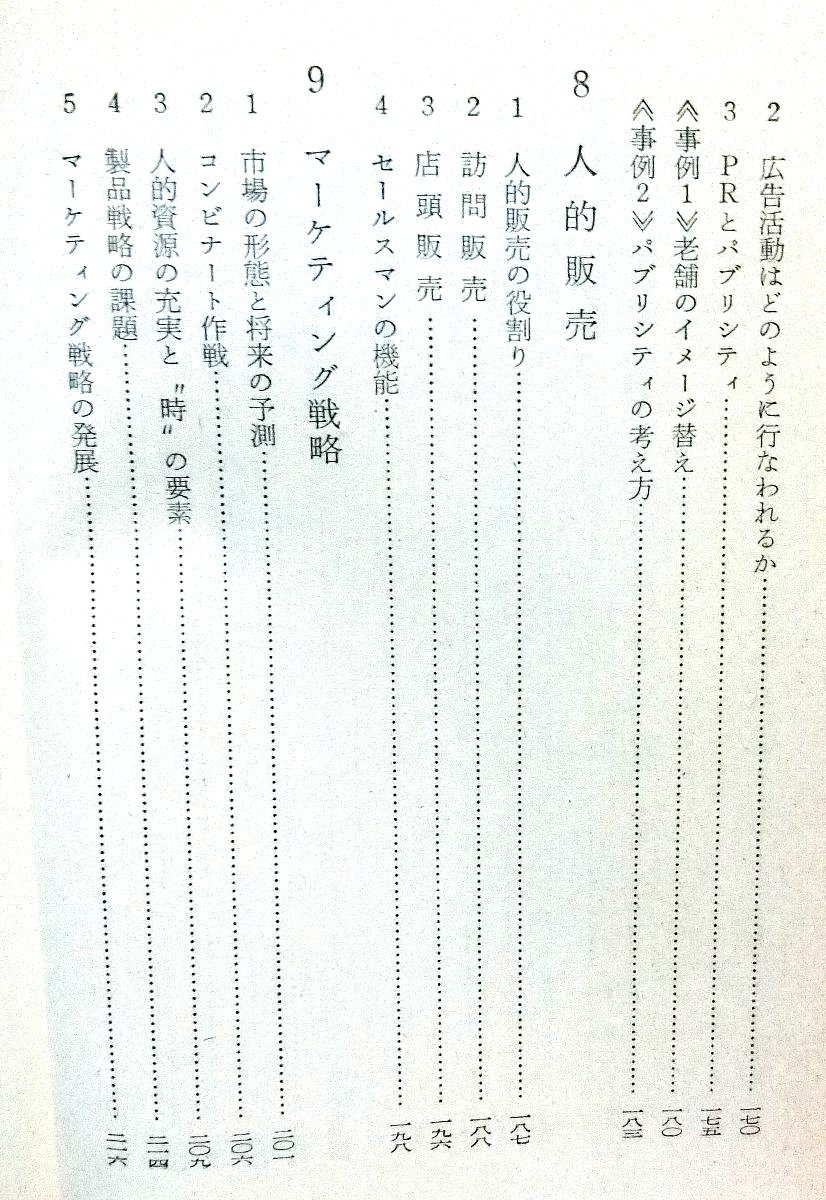 2 広告活動はどのように行なわれるか……一七〇
3 PRとパブリシティ……一七五
≪事例1≫老舗のイメージ替え……一八〇
≪事例2≫パブリシティの考え方……一八三
8 人的販売
1 人的販売の役割り……一八七
2 訪問販売……一八八
3 店頭販売……一九六
4 セールスマンの機能……一九八
9 マーケティング戦略
1 市場の形態と将来の予測……二〇一
2 コンビナート作戦……二〇六
3 人的資源の充実と〝時〟の要素……二〇九
4 製品戦略の課題……二一四
5 マーケティング戦略の発展……二一六